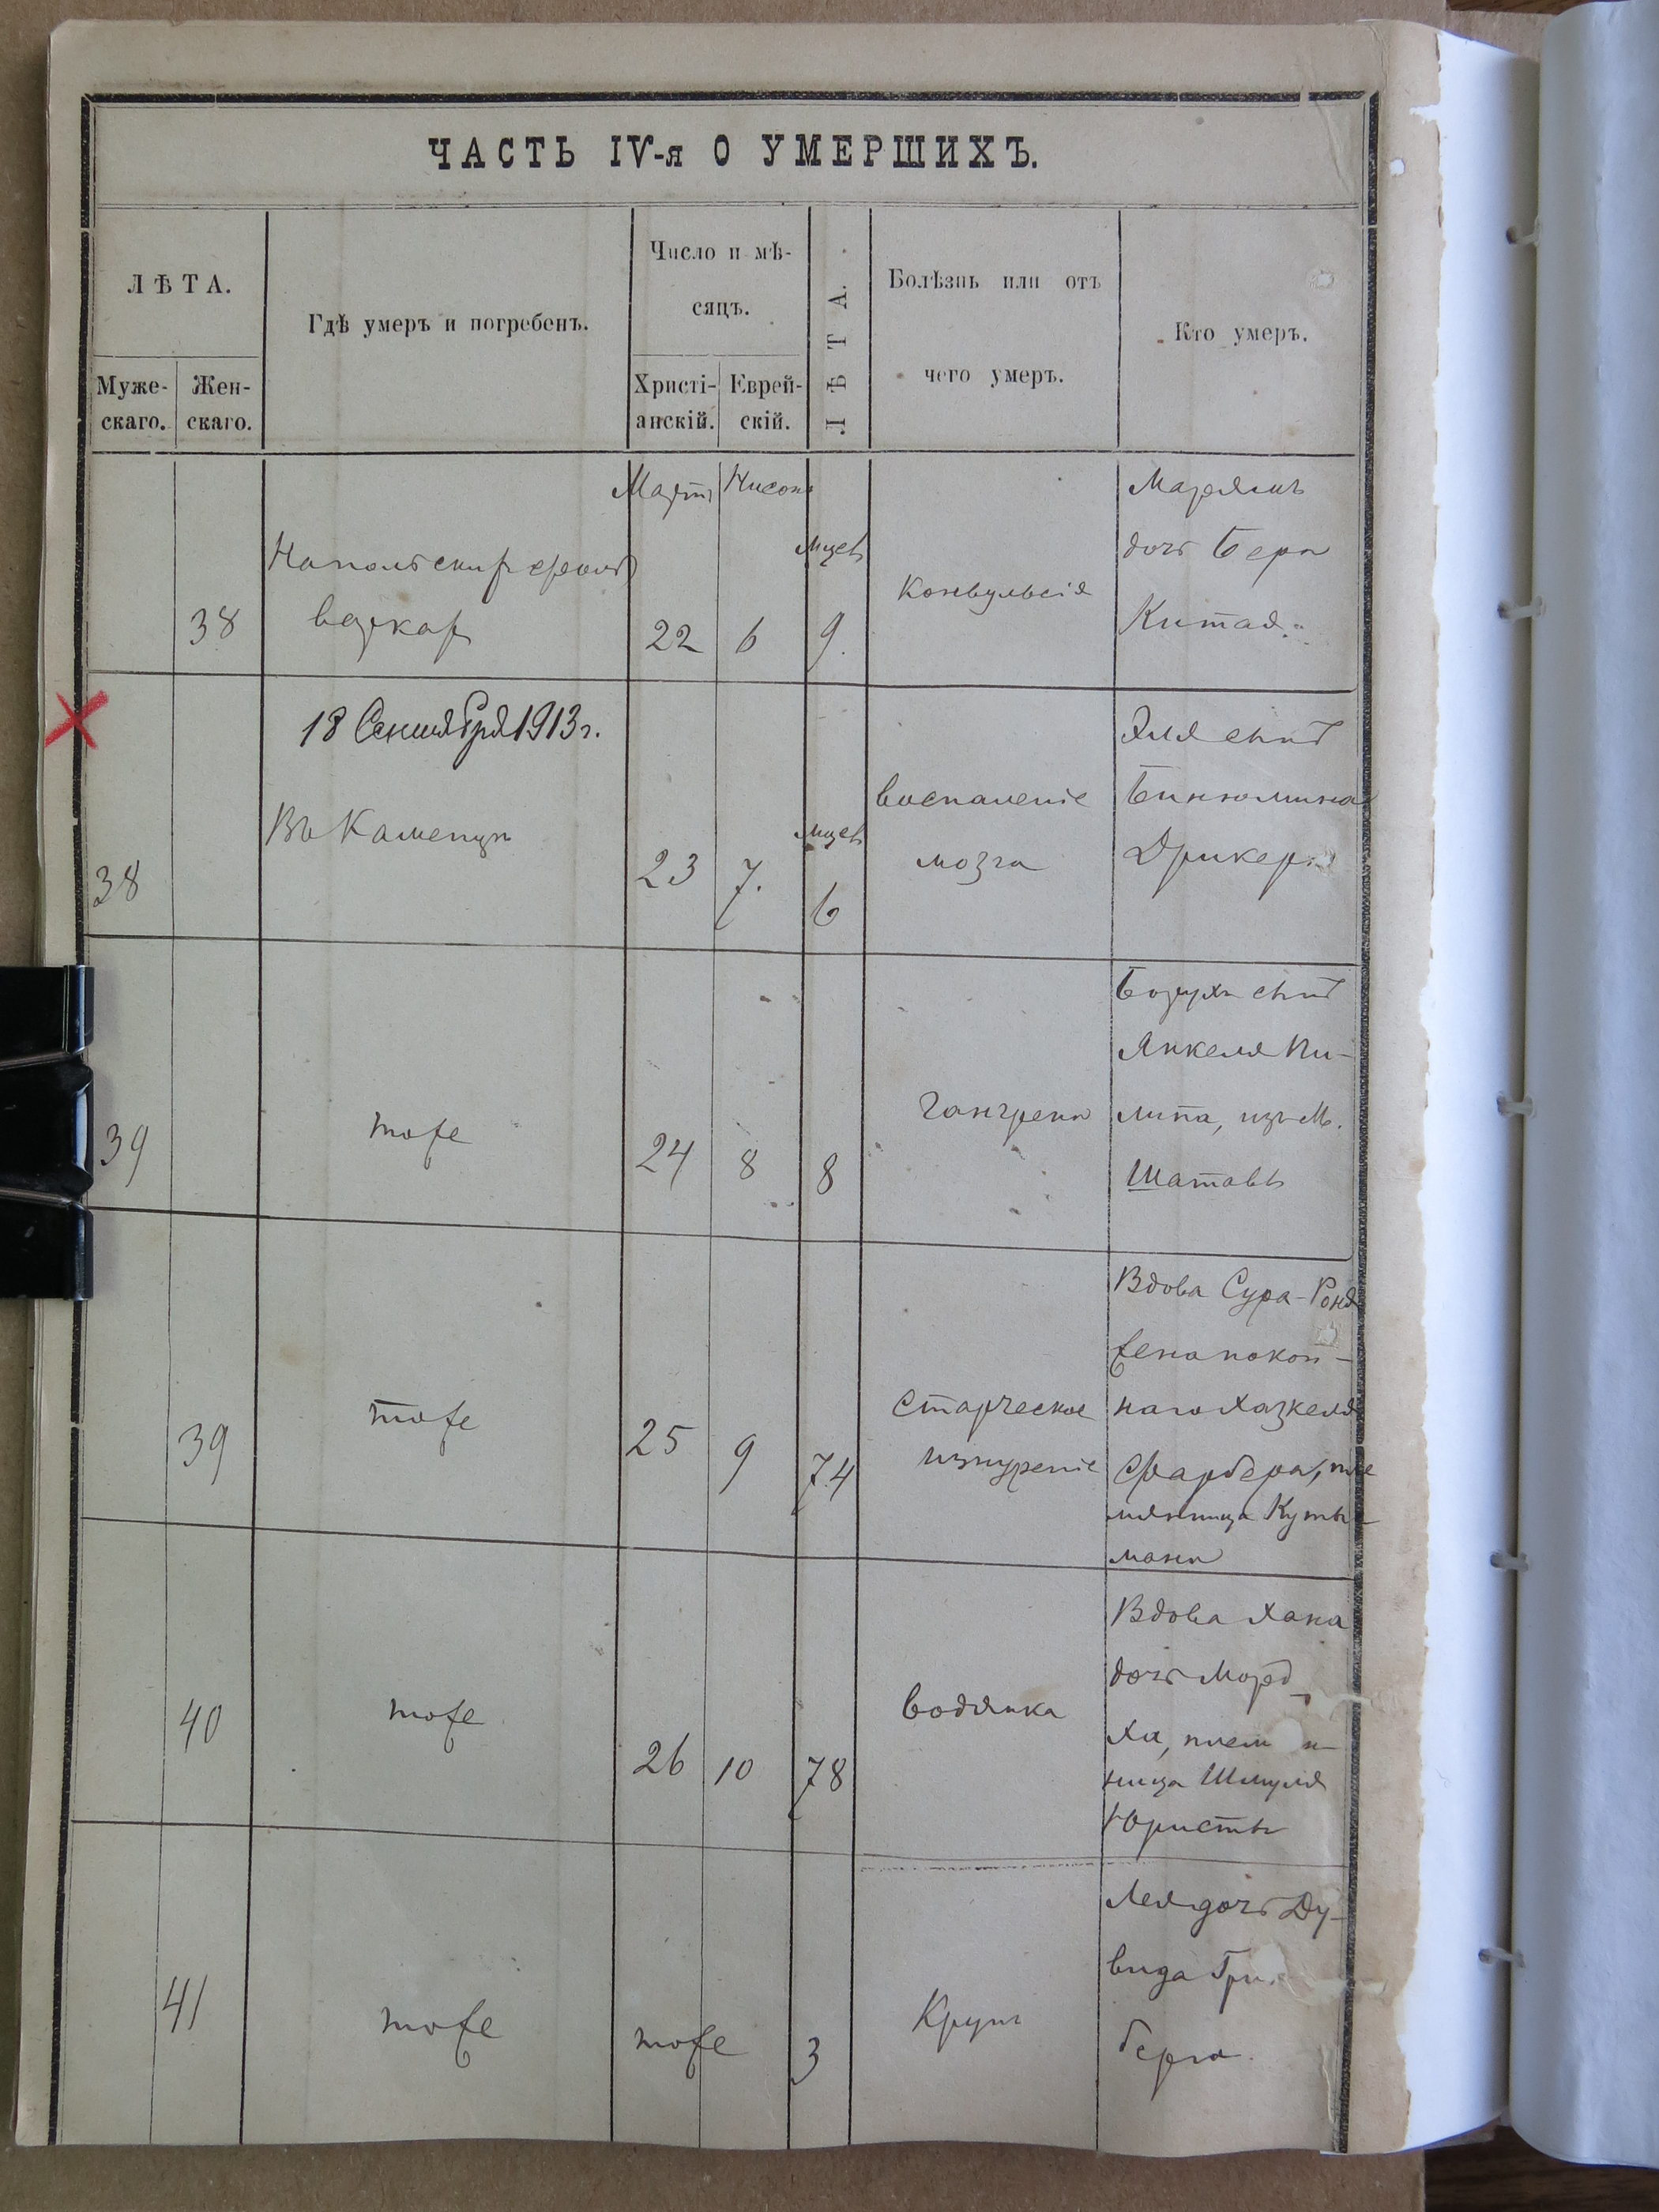 ЧАСТЬ IV-я О УМЕРШИХЪ.
ЛѢТА.
Муже-
скаго.
Жен-
скаго.
Гдѣ умеръ и погребенъ.
Число и мѣ-
сяцъ.
Христі-
анскій.
Еврей-
скій.
ЛѢТА.
Болѣзнь или отъ
чего умеръ.
Кто умеръ.
Мартъ Нисонъ
38
22 6
мцев
9.
конвульсія
Марьямъ
дочь Бера
Китая.
18 Сентября 1913 г.
38
Въ Каменцѣ
23 7.
мцев
6
воспаленіе
мозга
Эля сынъ
Бинюмина
Дрикера
39
тоже
24 8 8
гангрена
сынъ
Янкеля Пи-
липа, изъ М.
Шатавы
39
тоже
25 9 74
старческое
изнуреніе
Вдова Сура-Роня
жена покой-
наго Хазкеля
Фарбера, пле
мянница
мана
40
тоже
26 10 78
водянка
Вдова Хана
дочь Морд
ха, плем н-
ница Шмуля
Юристы
41
тоже
тоже 3
Крупъ
Лея дочь Ду-
вида Гри
берга.